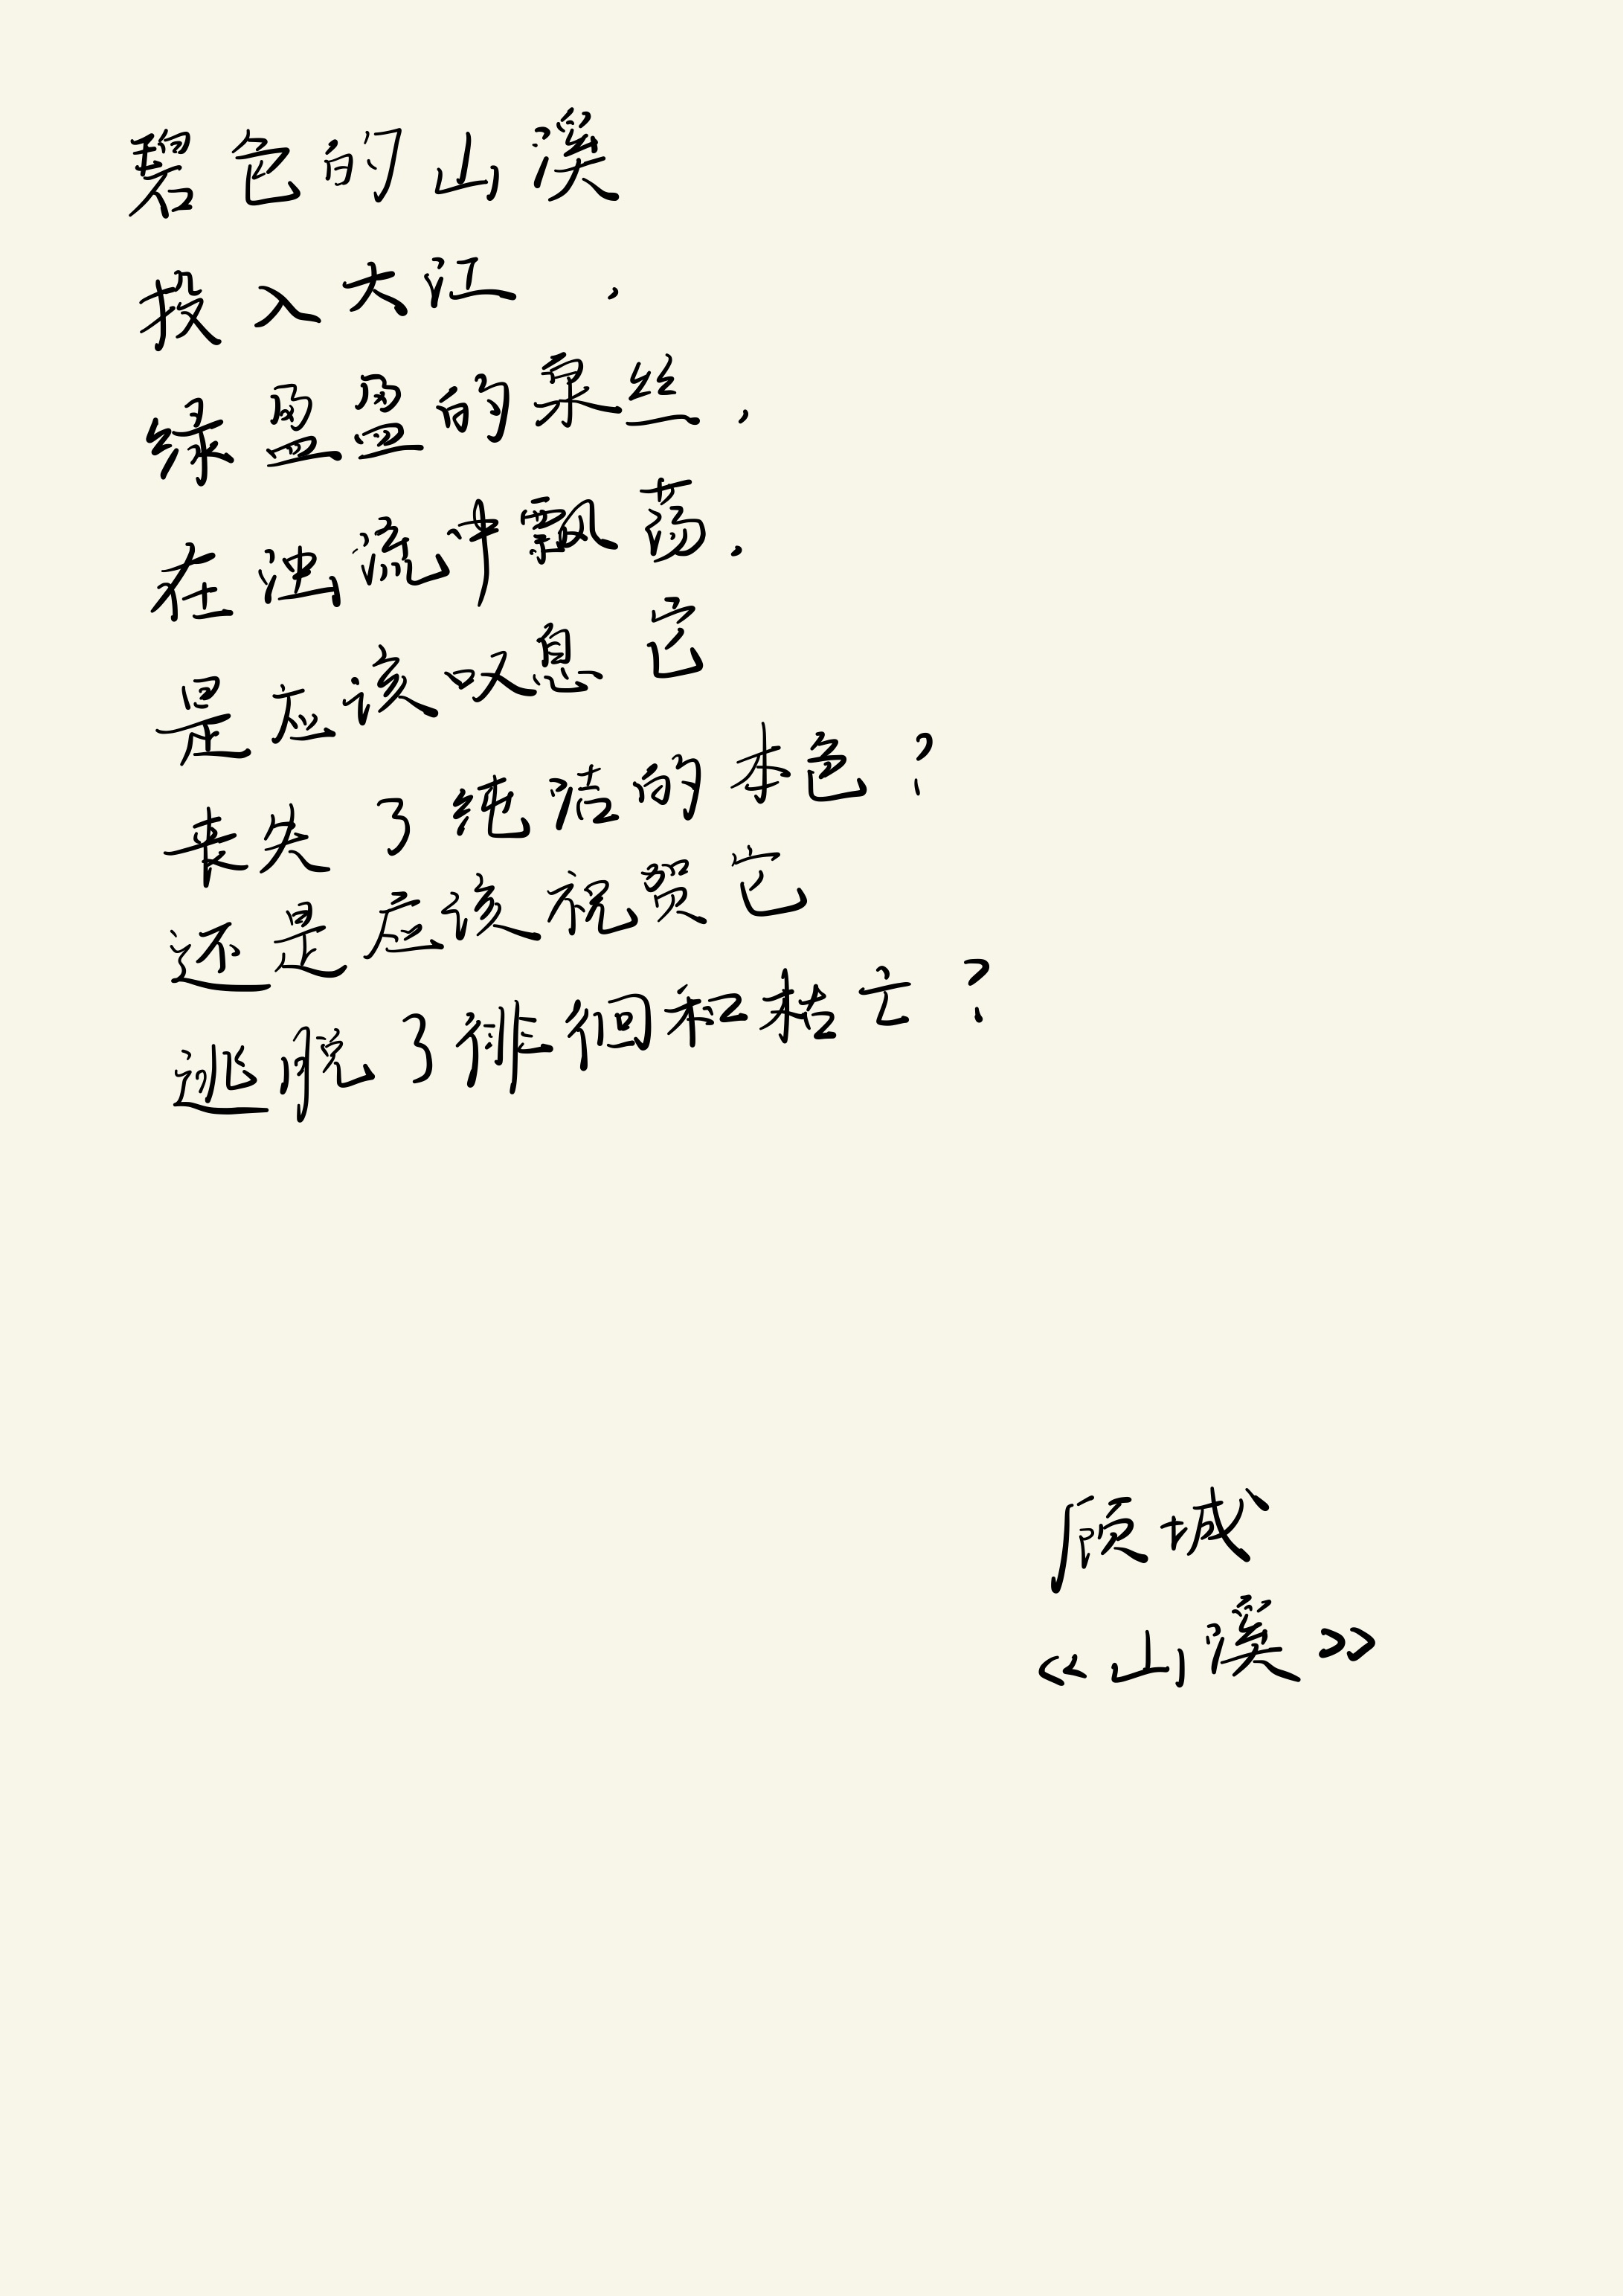 碧色的山溪
投入大江，
绿盈盈的泉丝，
在浊流中飘荡．
是应该叹息它
丧失了纯洁的本色？
还是应该祝贺它
逃脱了徘徊和枯亡？
顾城
《山溪》